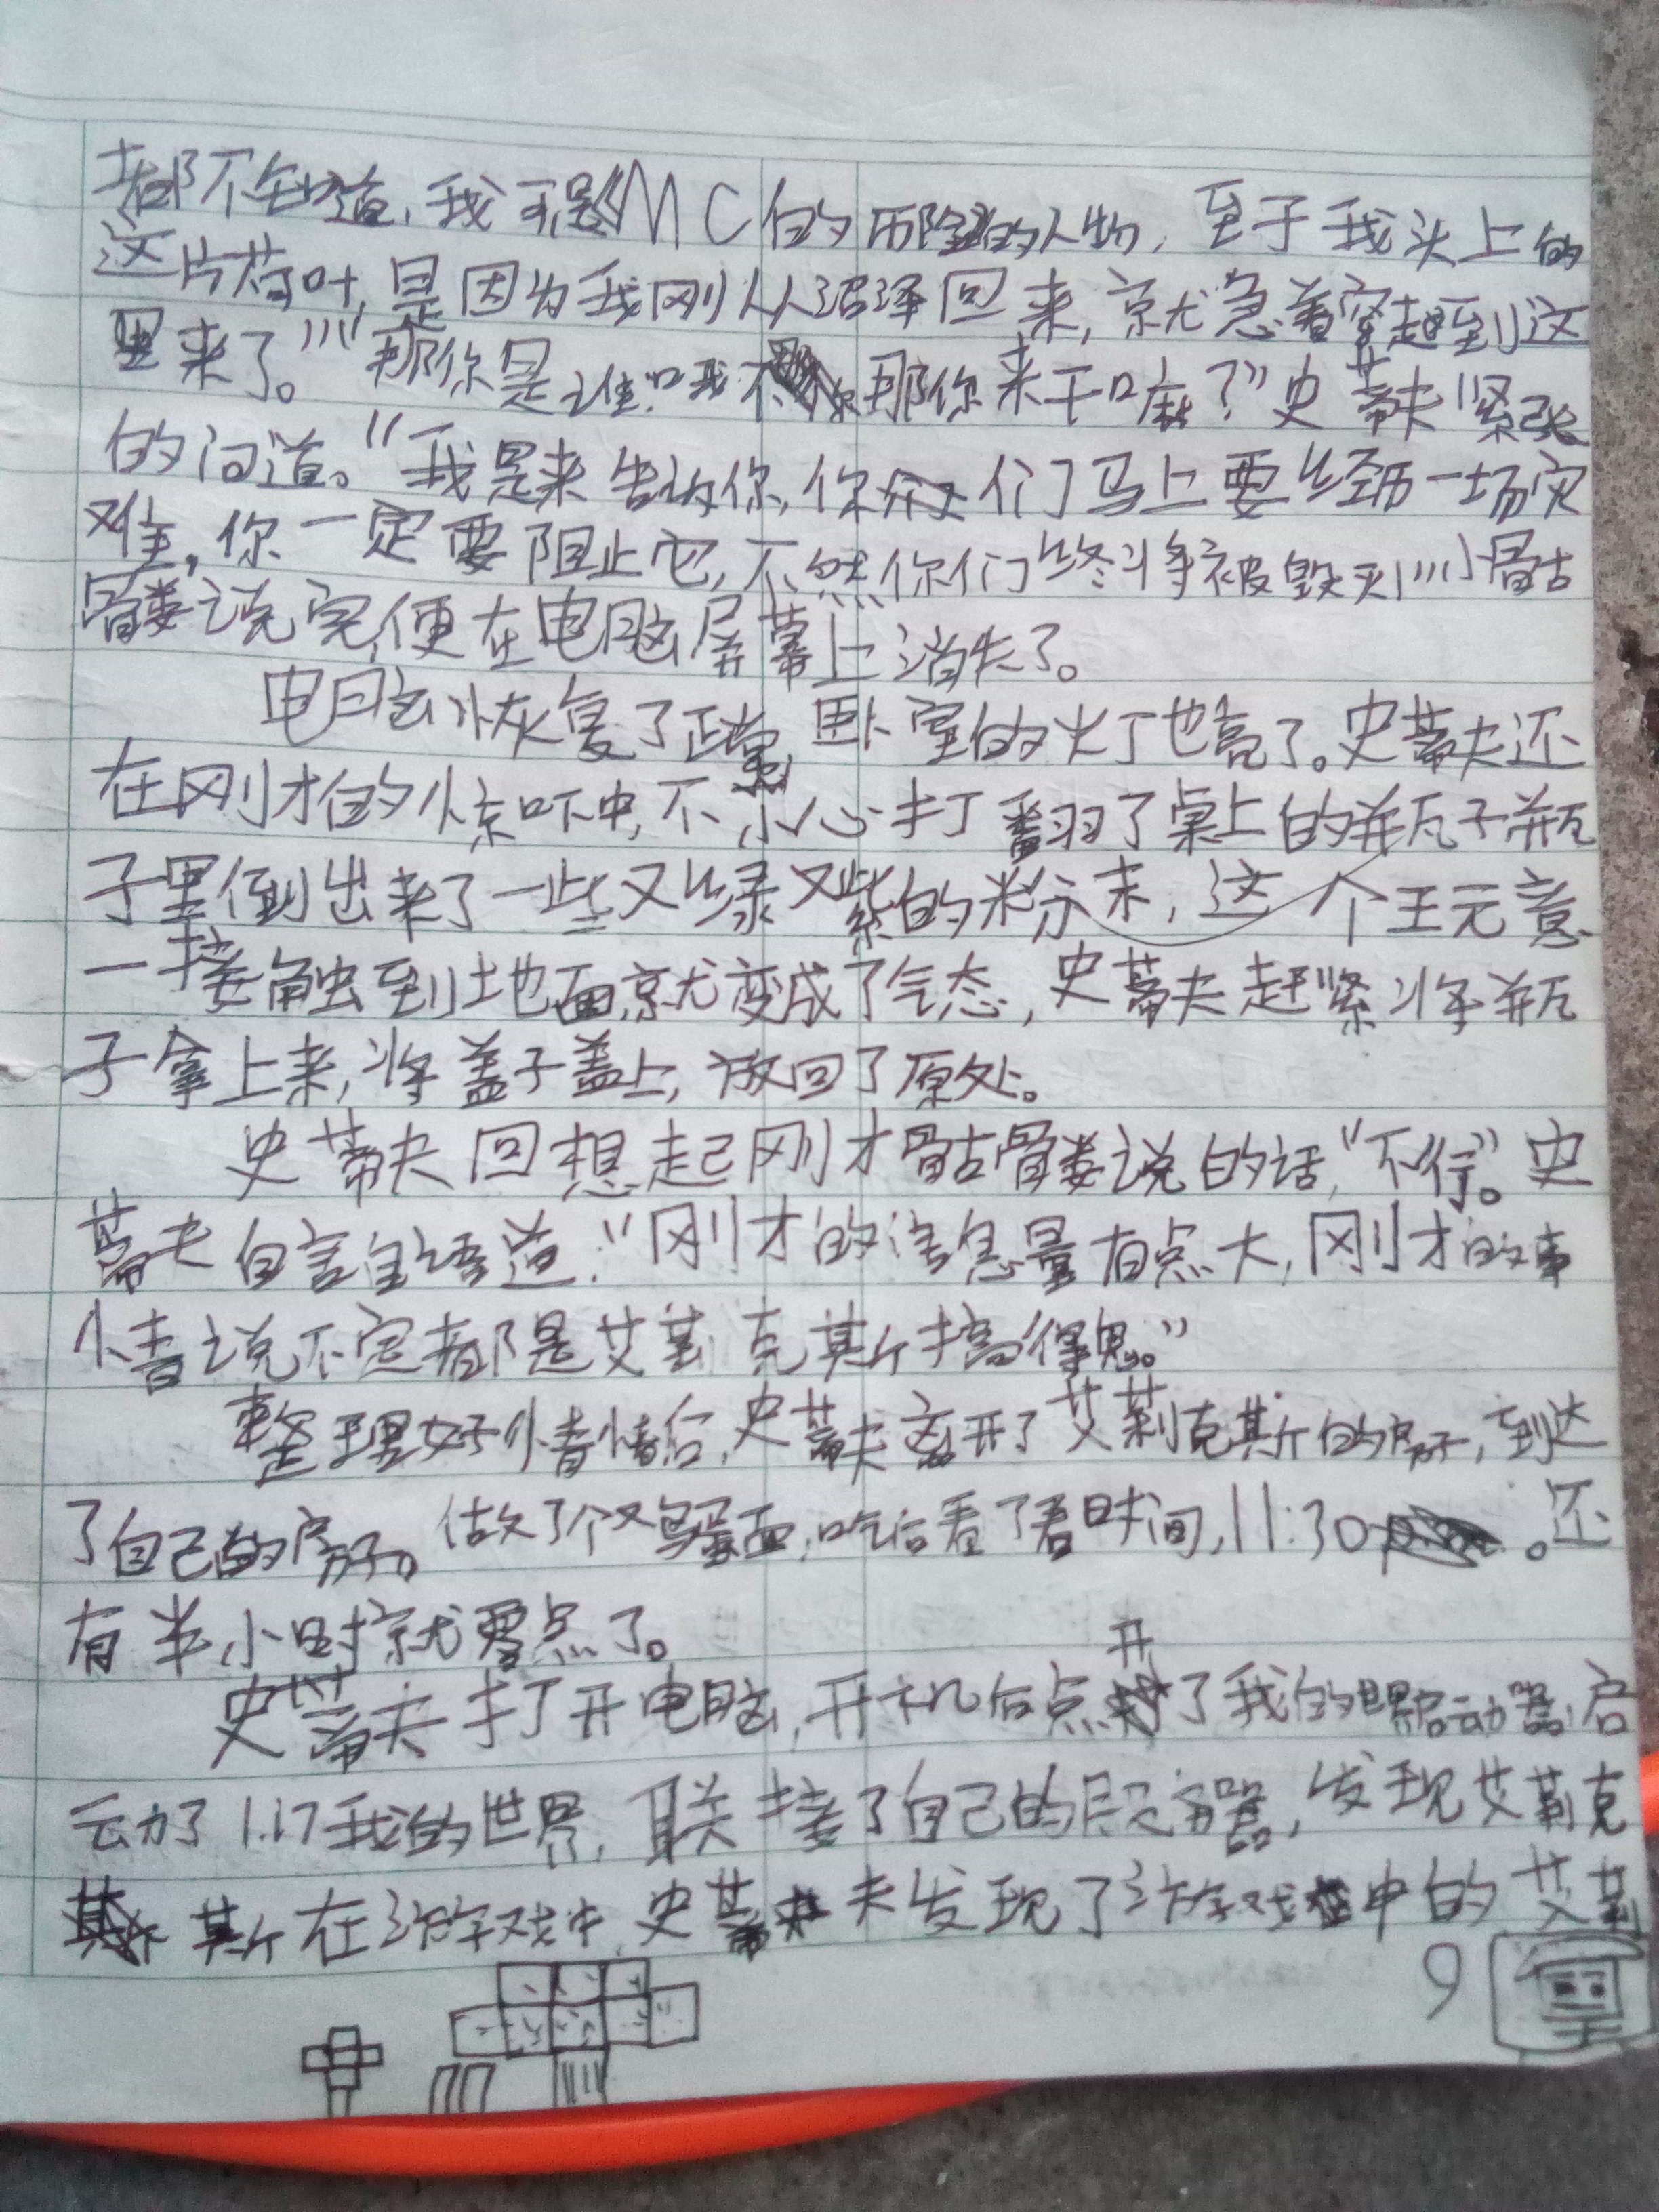 都不知道，我可是《MC的历险》的人物，至于我头上的
这片荷叶，是因为我刚从沼泽回来，就急着穿越到这
里来了。”“那你是谁？哦不 那你来干嘛？”史蒂夫紧张
的问道。“我是来告诉你，你们马上要经历一场灾
难，你一定要阻止它，不然你们终将被毁灭！”骷
髅说完，便在电脑屏幕上消失了。
电脑恢复了正常，卧室的灯也亮了。史蒂夫还
在刚才的惊吓中，不小心打翻了桌上的瓶子瓶
子里倒出来了一些又绿又紫的粉末，这个玩意
一接触到地面就变成了气态，史蒂夫赶紧将瓶
子拿上来，将盖子盖上，放回了原处。
史蒂夫回想起刚才骷髅说的话，“不行”。史
蒂夫自言自语道：“刚才的信息量有点大，刚才的事
情说不定都是艾莉克斯搞得鬼。”
整理好情绪后，史蒂夫离开了艾莉克斯的房子，到达
了自己的房子。做了个鸡蛋面，吃后看了看时间，11:30。还
有半小时就零点了。
史蒂夫打开电脑，开机后点开了我的世界启动器，启
动了1.17我的世界，联接了自己的服务器，发现艾莉克
斯在游戏中，史蒂夫发现了游戏中的艾莉
9